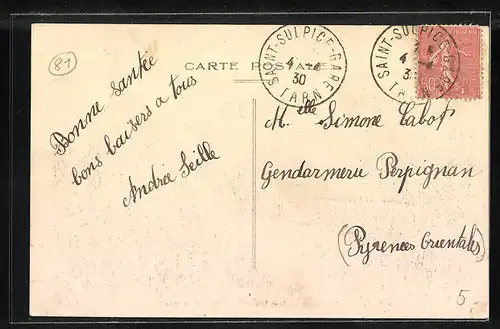 81
CARTE POSTALE
SAINT-SULPICE-GARE
4 -4
30
TARN
SAINT-SULPICE-GARE
4 -4
TARN
Bonne santée
bons baisers a tous
Andrée Seille
M.elle Simone Cabot
Gendarmerie Perpignan
(Pyrenees Orientales)
5